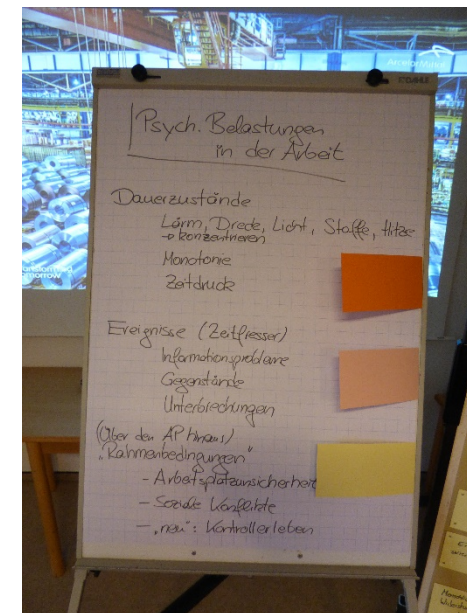 ArcelorMittal
Psych. Belastungen
in der Arbeit
Dauerzustände
Lärm, Drede, Licht, Stoffe, Hitze
→ konzentrieren
Monotonie
Zeitdruck
Ereignisse (Zeitfresser)
Informationsprobleme
Gegenstände
Unterbrechungen
(Über den AP hinaus)
"Rahmenbedingungen"
- Arbeitsplatzunsicherheit
- Soziale Konflikte
- "neu": Kontrollerleben
tomorrow